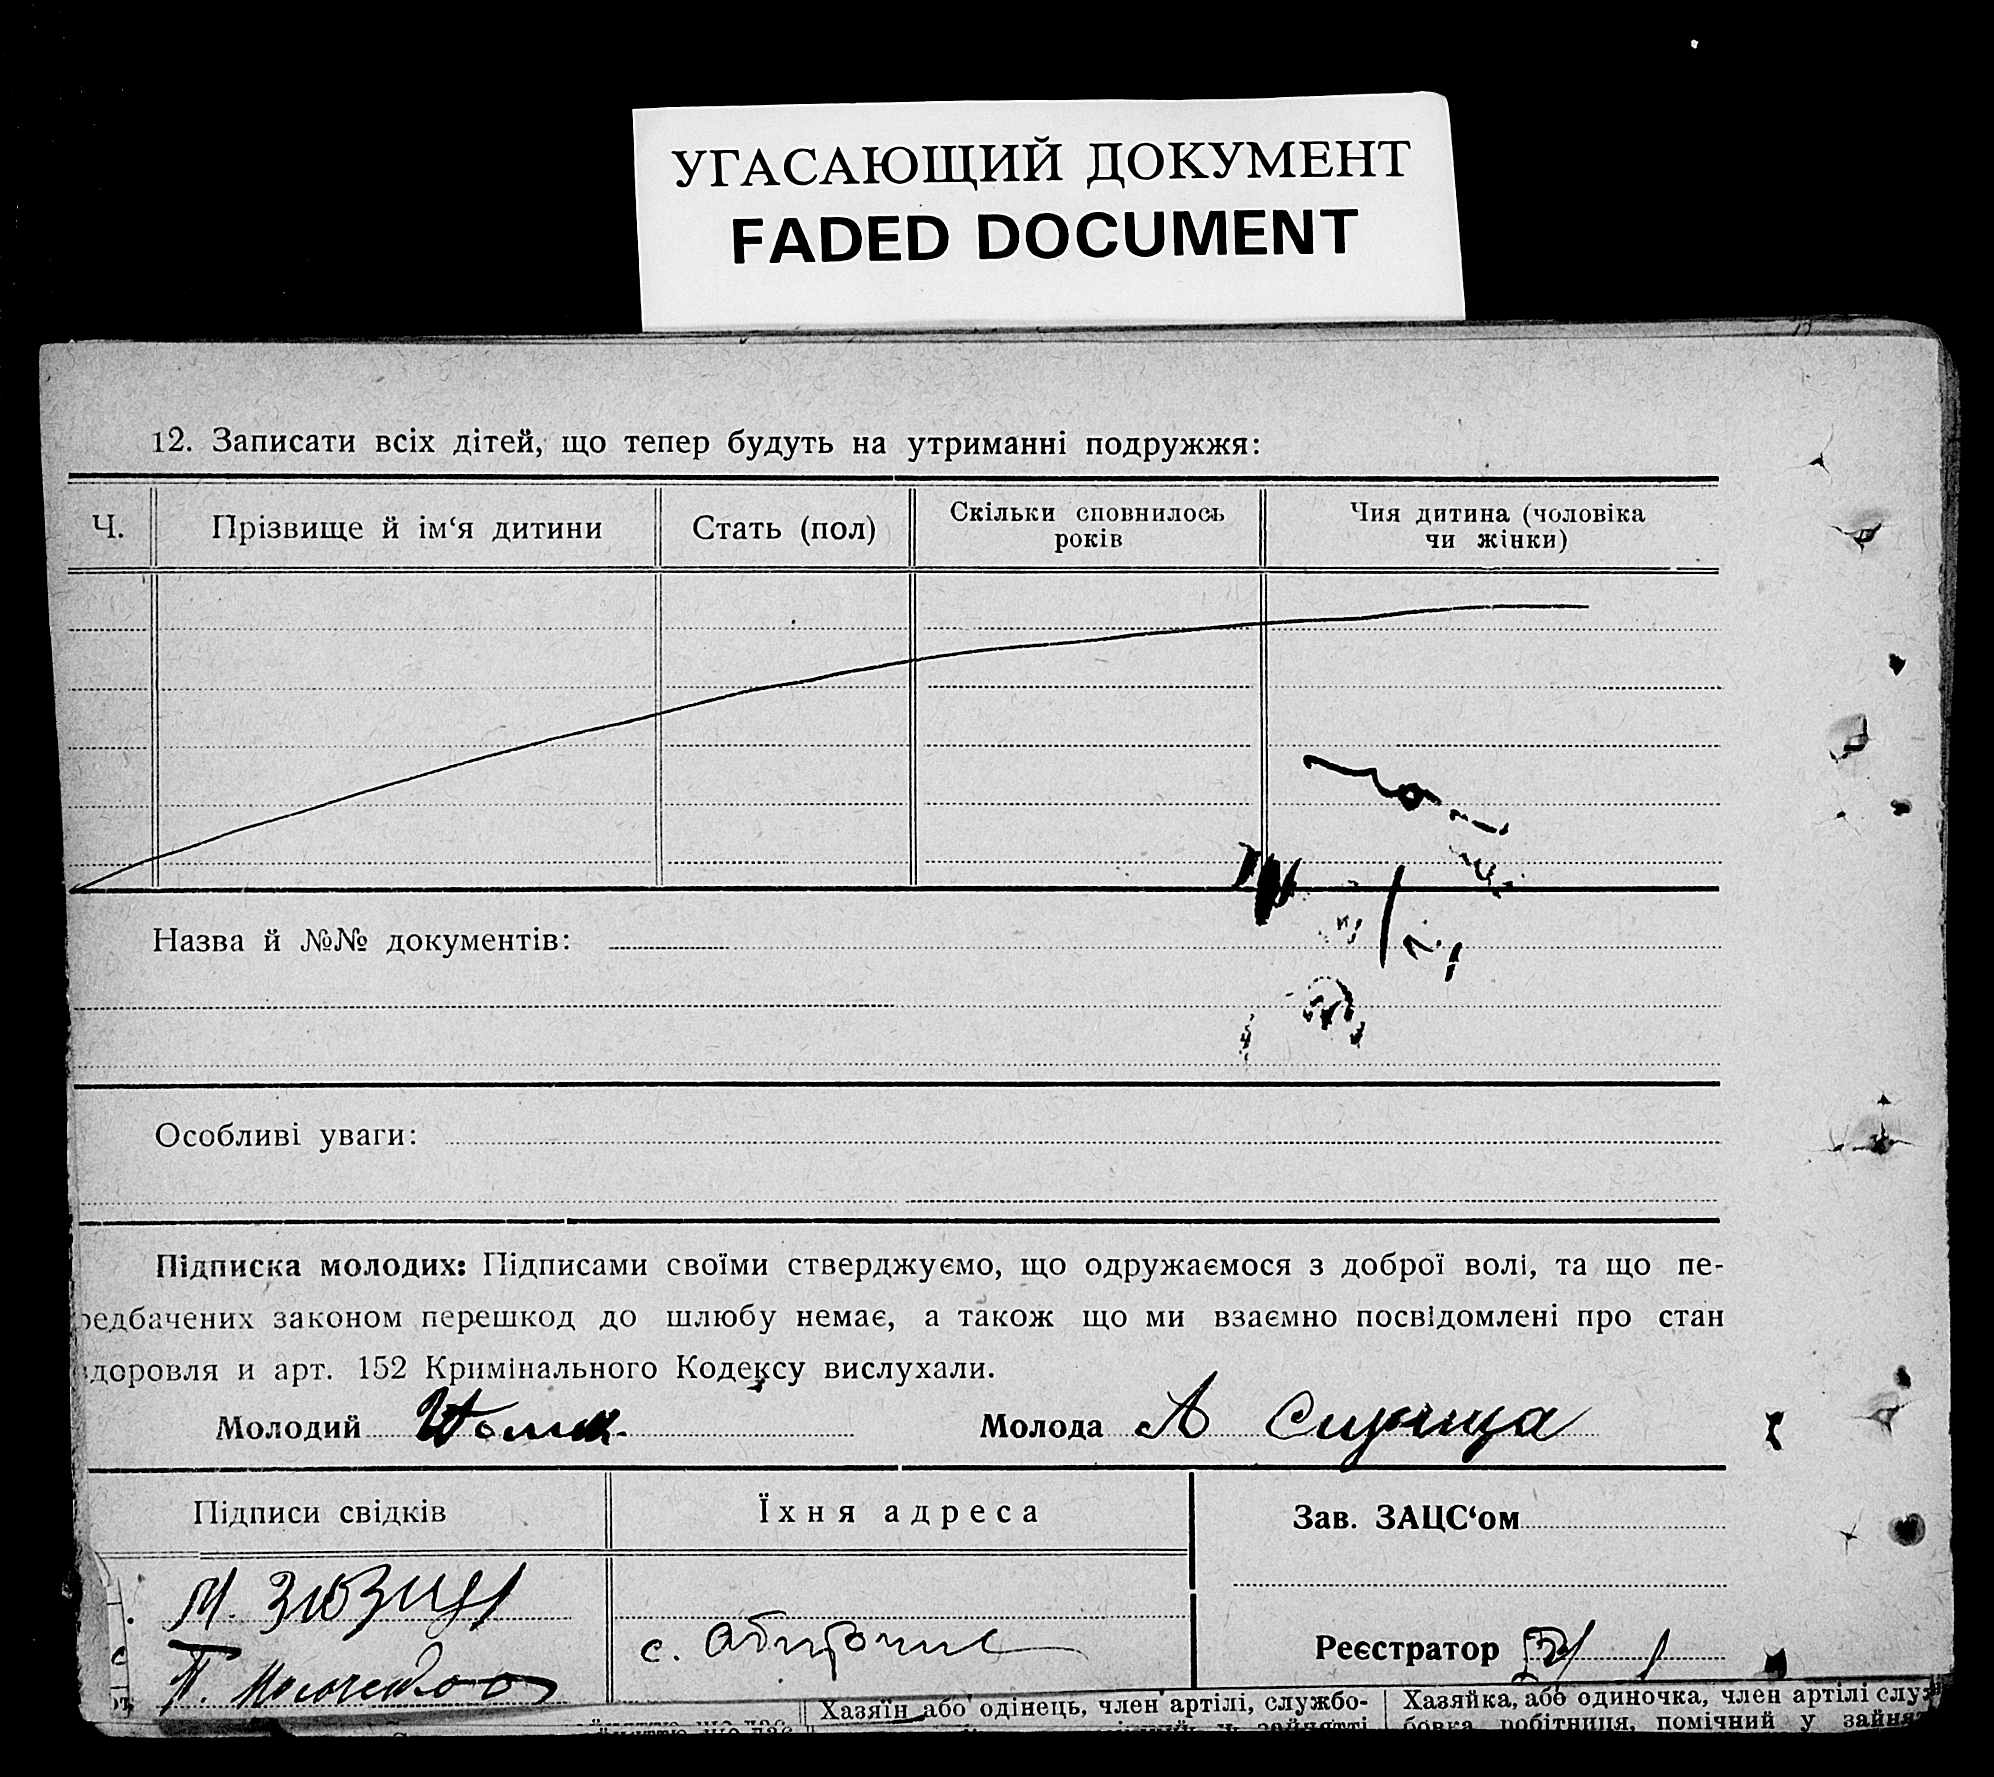 УГАСАЮЩИЙ ДОКУМЕНТ
FADED DOCUMENT
12. Записати всіх дітей, що тепер будуть на утриманні подружжя:
Ч.
Прізвище й ім‘я дитини
Стать (пол)
Скільки сповнилось
років
Чия дитина (чоловіка
чи жінки)
Назва й №№ документів:
Особливі уваги:
Підписка молодих: Підписами своїми стверджуємо, що одружаємося з доброї волі, та що пе-
редбачених законом перешкод до шлюбу немає, а також що ми взаємно посвідомлені про стан
здоровля и арт. 152 Кримінального Кодексу вислухали.
Молодий
Молода А
Підписи свідків
Їхня адреса
Зав. ЗАЦС‘ом
М.
с.
Реєстратор
П.
Хазяїн або одінець, член артілі, службо-
Хазяйка, або одиночка, член артілі служ
бовка робітниця, помічний у зайня